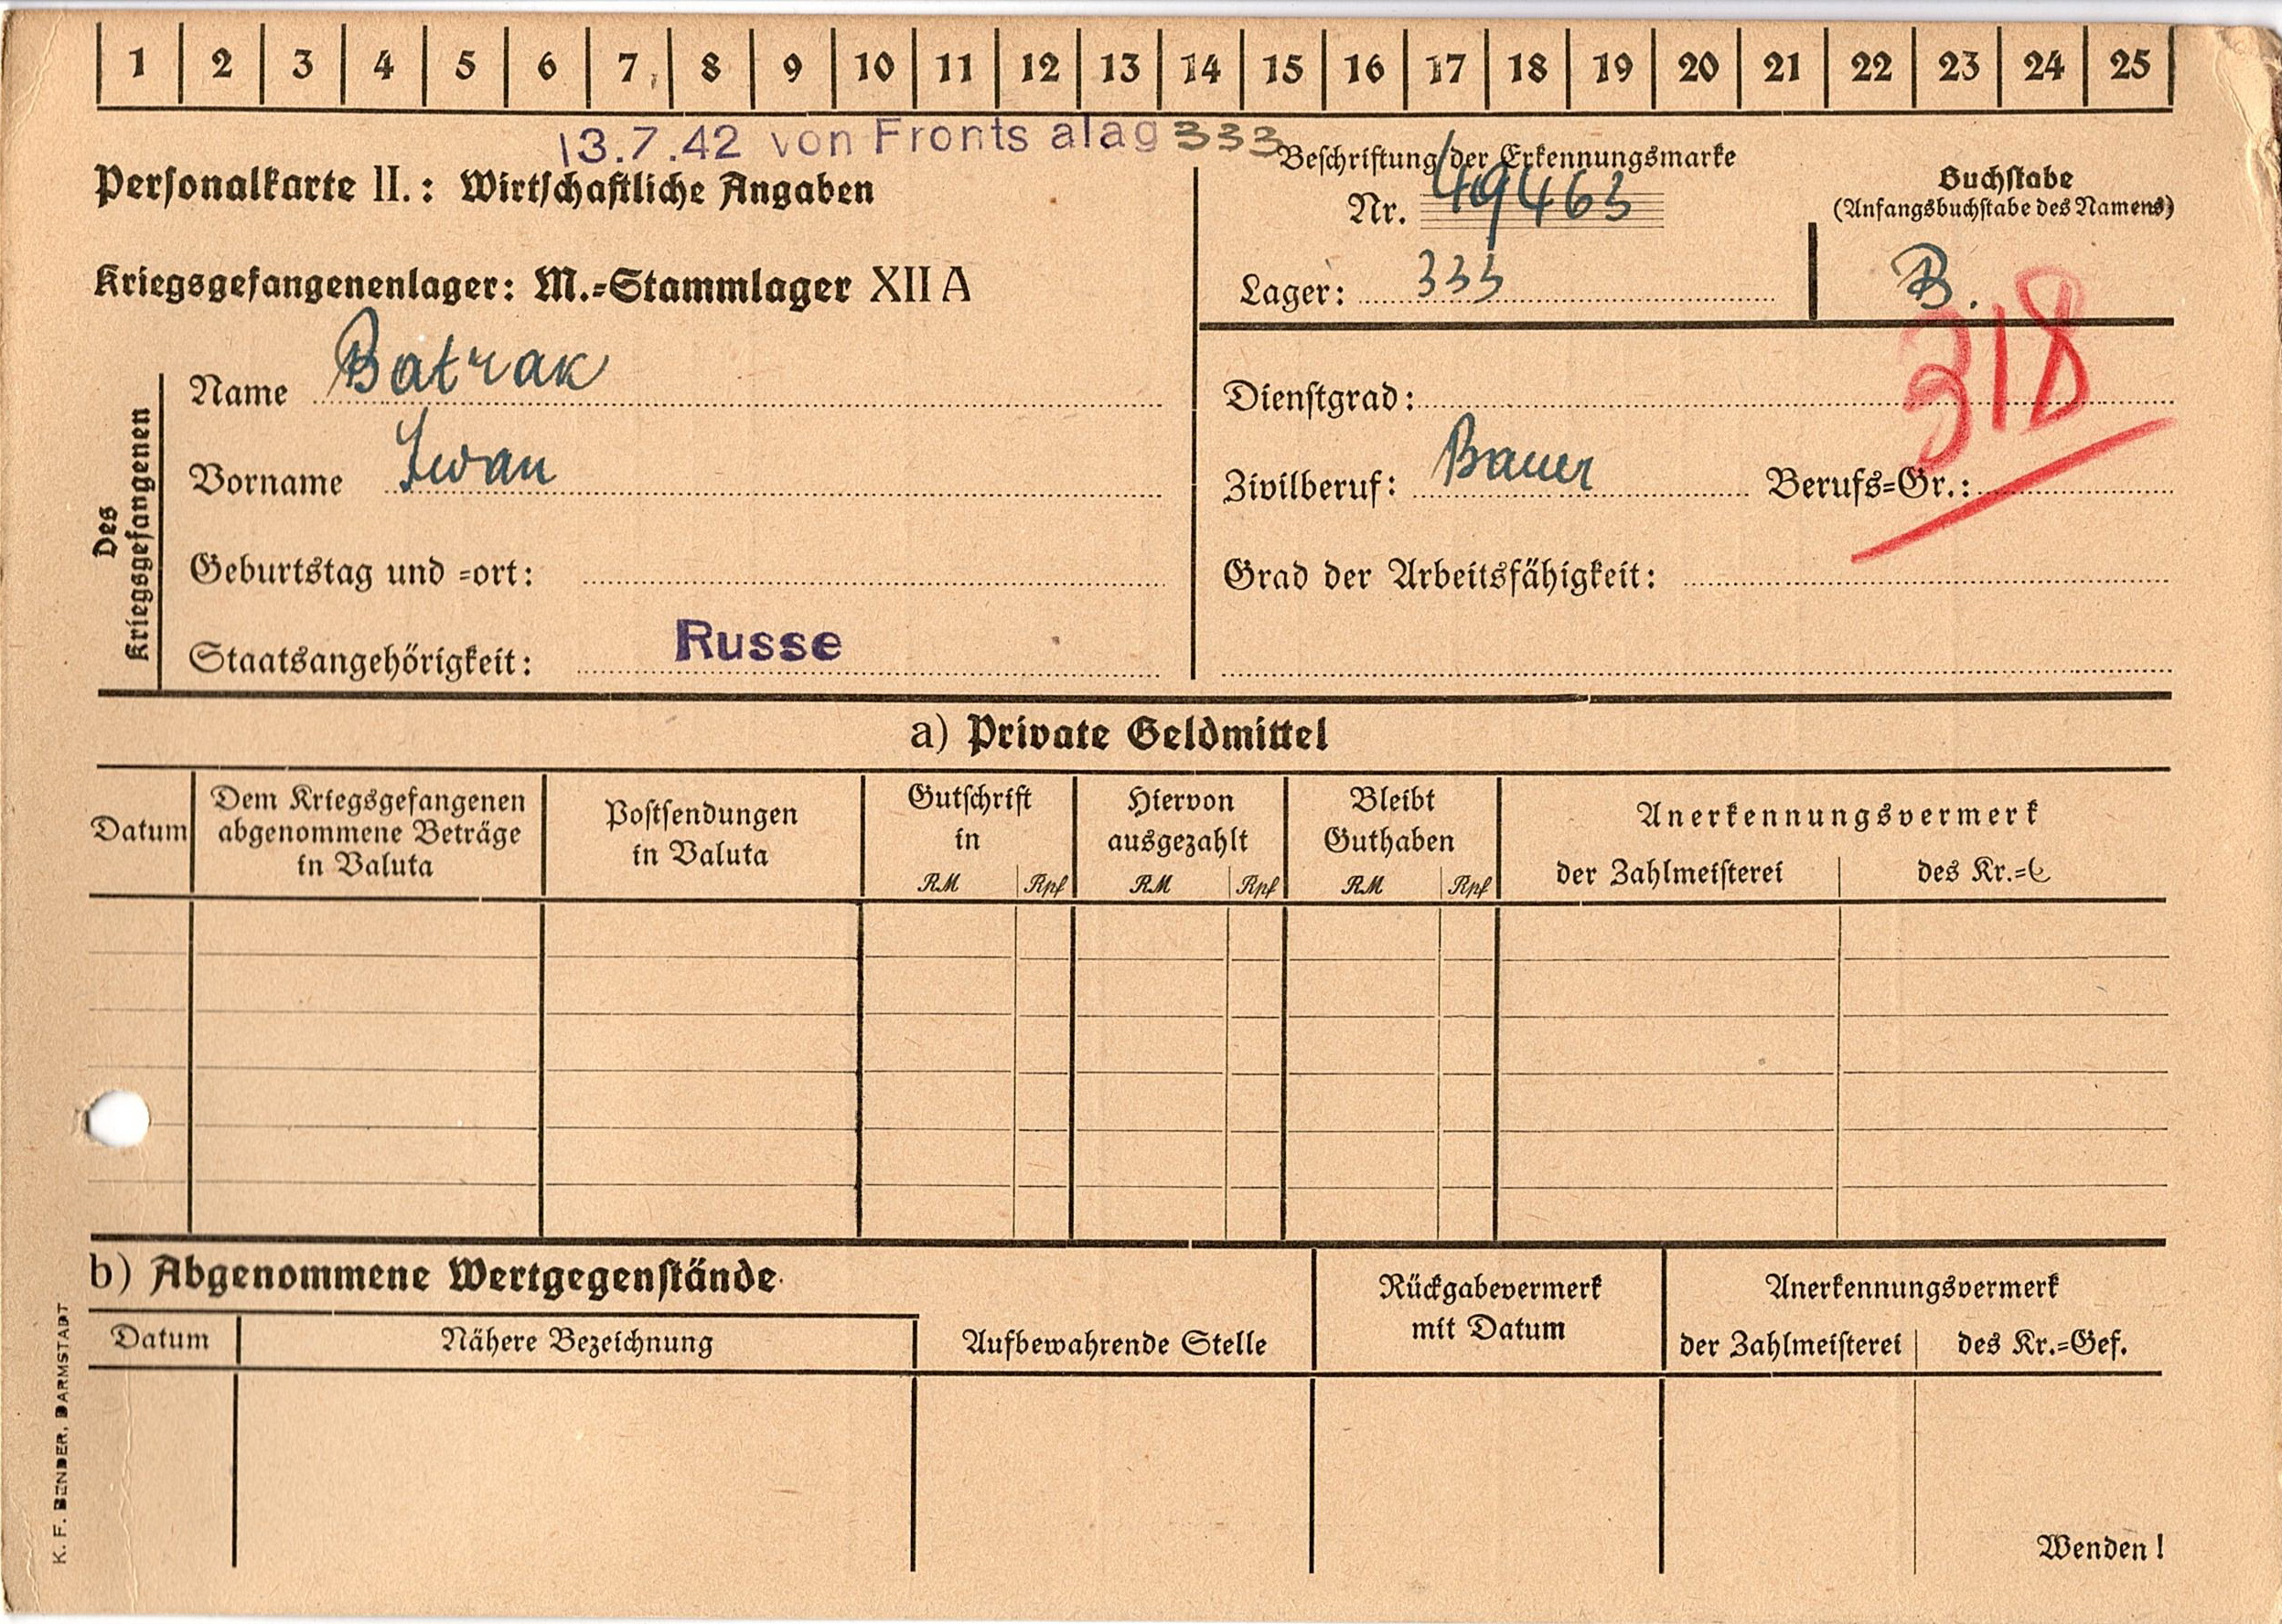 1 2 3 4 5 6 7 8 9 10 11 12 13 14 15 16 17 18 19 20 21 22 23 24 25
13.7.42 von Fronts alag 333
Personalkarte II.: Wirtschaftliche Angaben
Kriegsgefangenenlager: M.-Stammlager XII A
Beschriftung der Erkennungsmarke
Nr. 49463
Lager: 333
Buchstabe
(Anfangsbuchstabe des Namens)
B.
318
Des
Kriegsgefangenen
Name Batrak
Vorname Iwan
Geburtstag und -ort:
Staatsangehörigkeit: Russe
Dienstgrad:
Zivilberuf: Bauer Berufs-Gr.:
Grad der Arbeitsfähigkeit:
a) Private Geldmittel
Datum
Dem Kriegsgefangenen
abgenommene Beträge
in Valuta
Postsendungen
in Valuta
Gutschrift
in
RM Rpf
Hiervon
ausgezahlt
RM Rpf
Bleibt
Guthaben
RM Rpf
Anerkennungsvermerk
der Zahlmeisterei des Kr.-G
b) Abgenommene Wertgegenstände
Datum Nähere Bezeichnung
Aufbewahrende Stelle
Rückgabevermerk
mit Datum
Anerkennungsvermerk
der Zahlmeisterei des Kr.-Gef.
Wenden!
K. F. BENDER, DARMSTADT